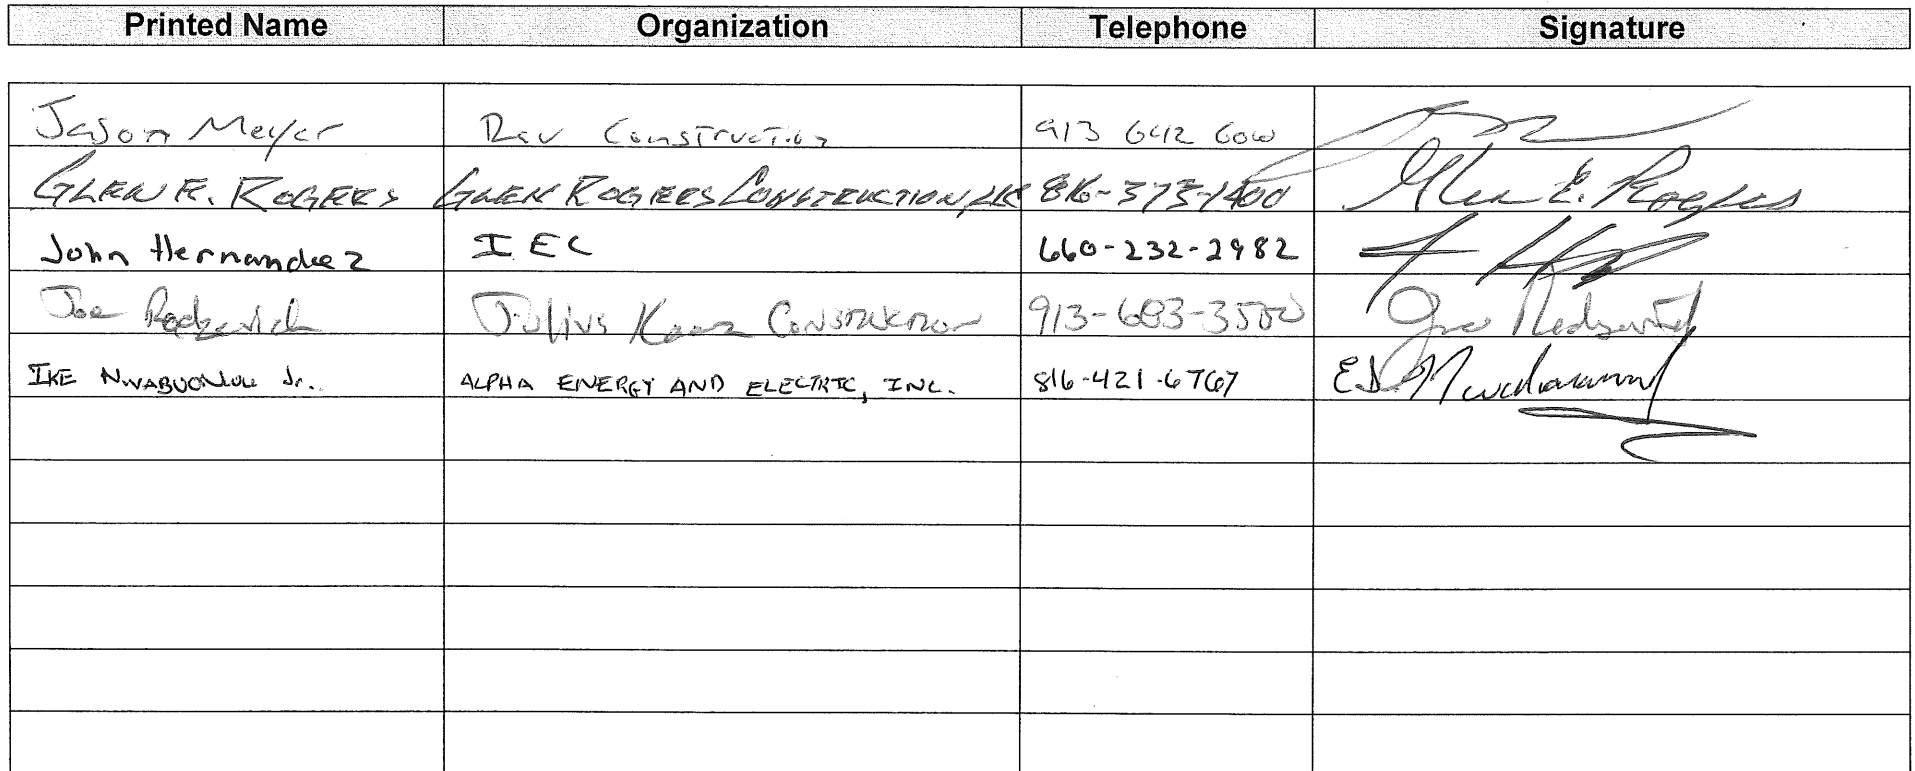 Printed Name Organization Telephone Signature
Jason Meyer Rau Construction 913 642 6000
GLEN E. ROGERS GLEN ROGERS CONSTRUCTION, LLC 816-373-1400 Glen E. Rogers
John Hernandez IEC 660-232-2982
Joe Radzevich Julius Kaaz Construction 913-683-3550
IKE Jr. ALPHA ENERGY AND ELECTRIC, INC. 816-421-6767